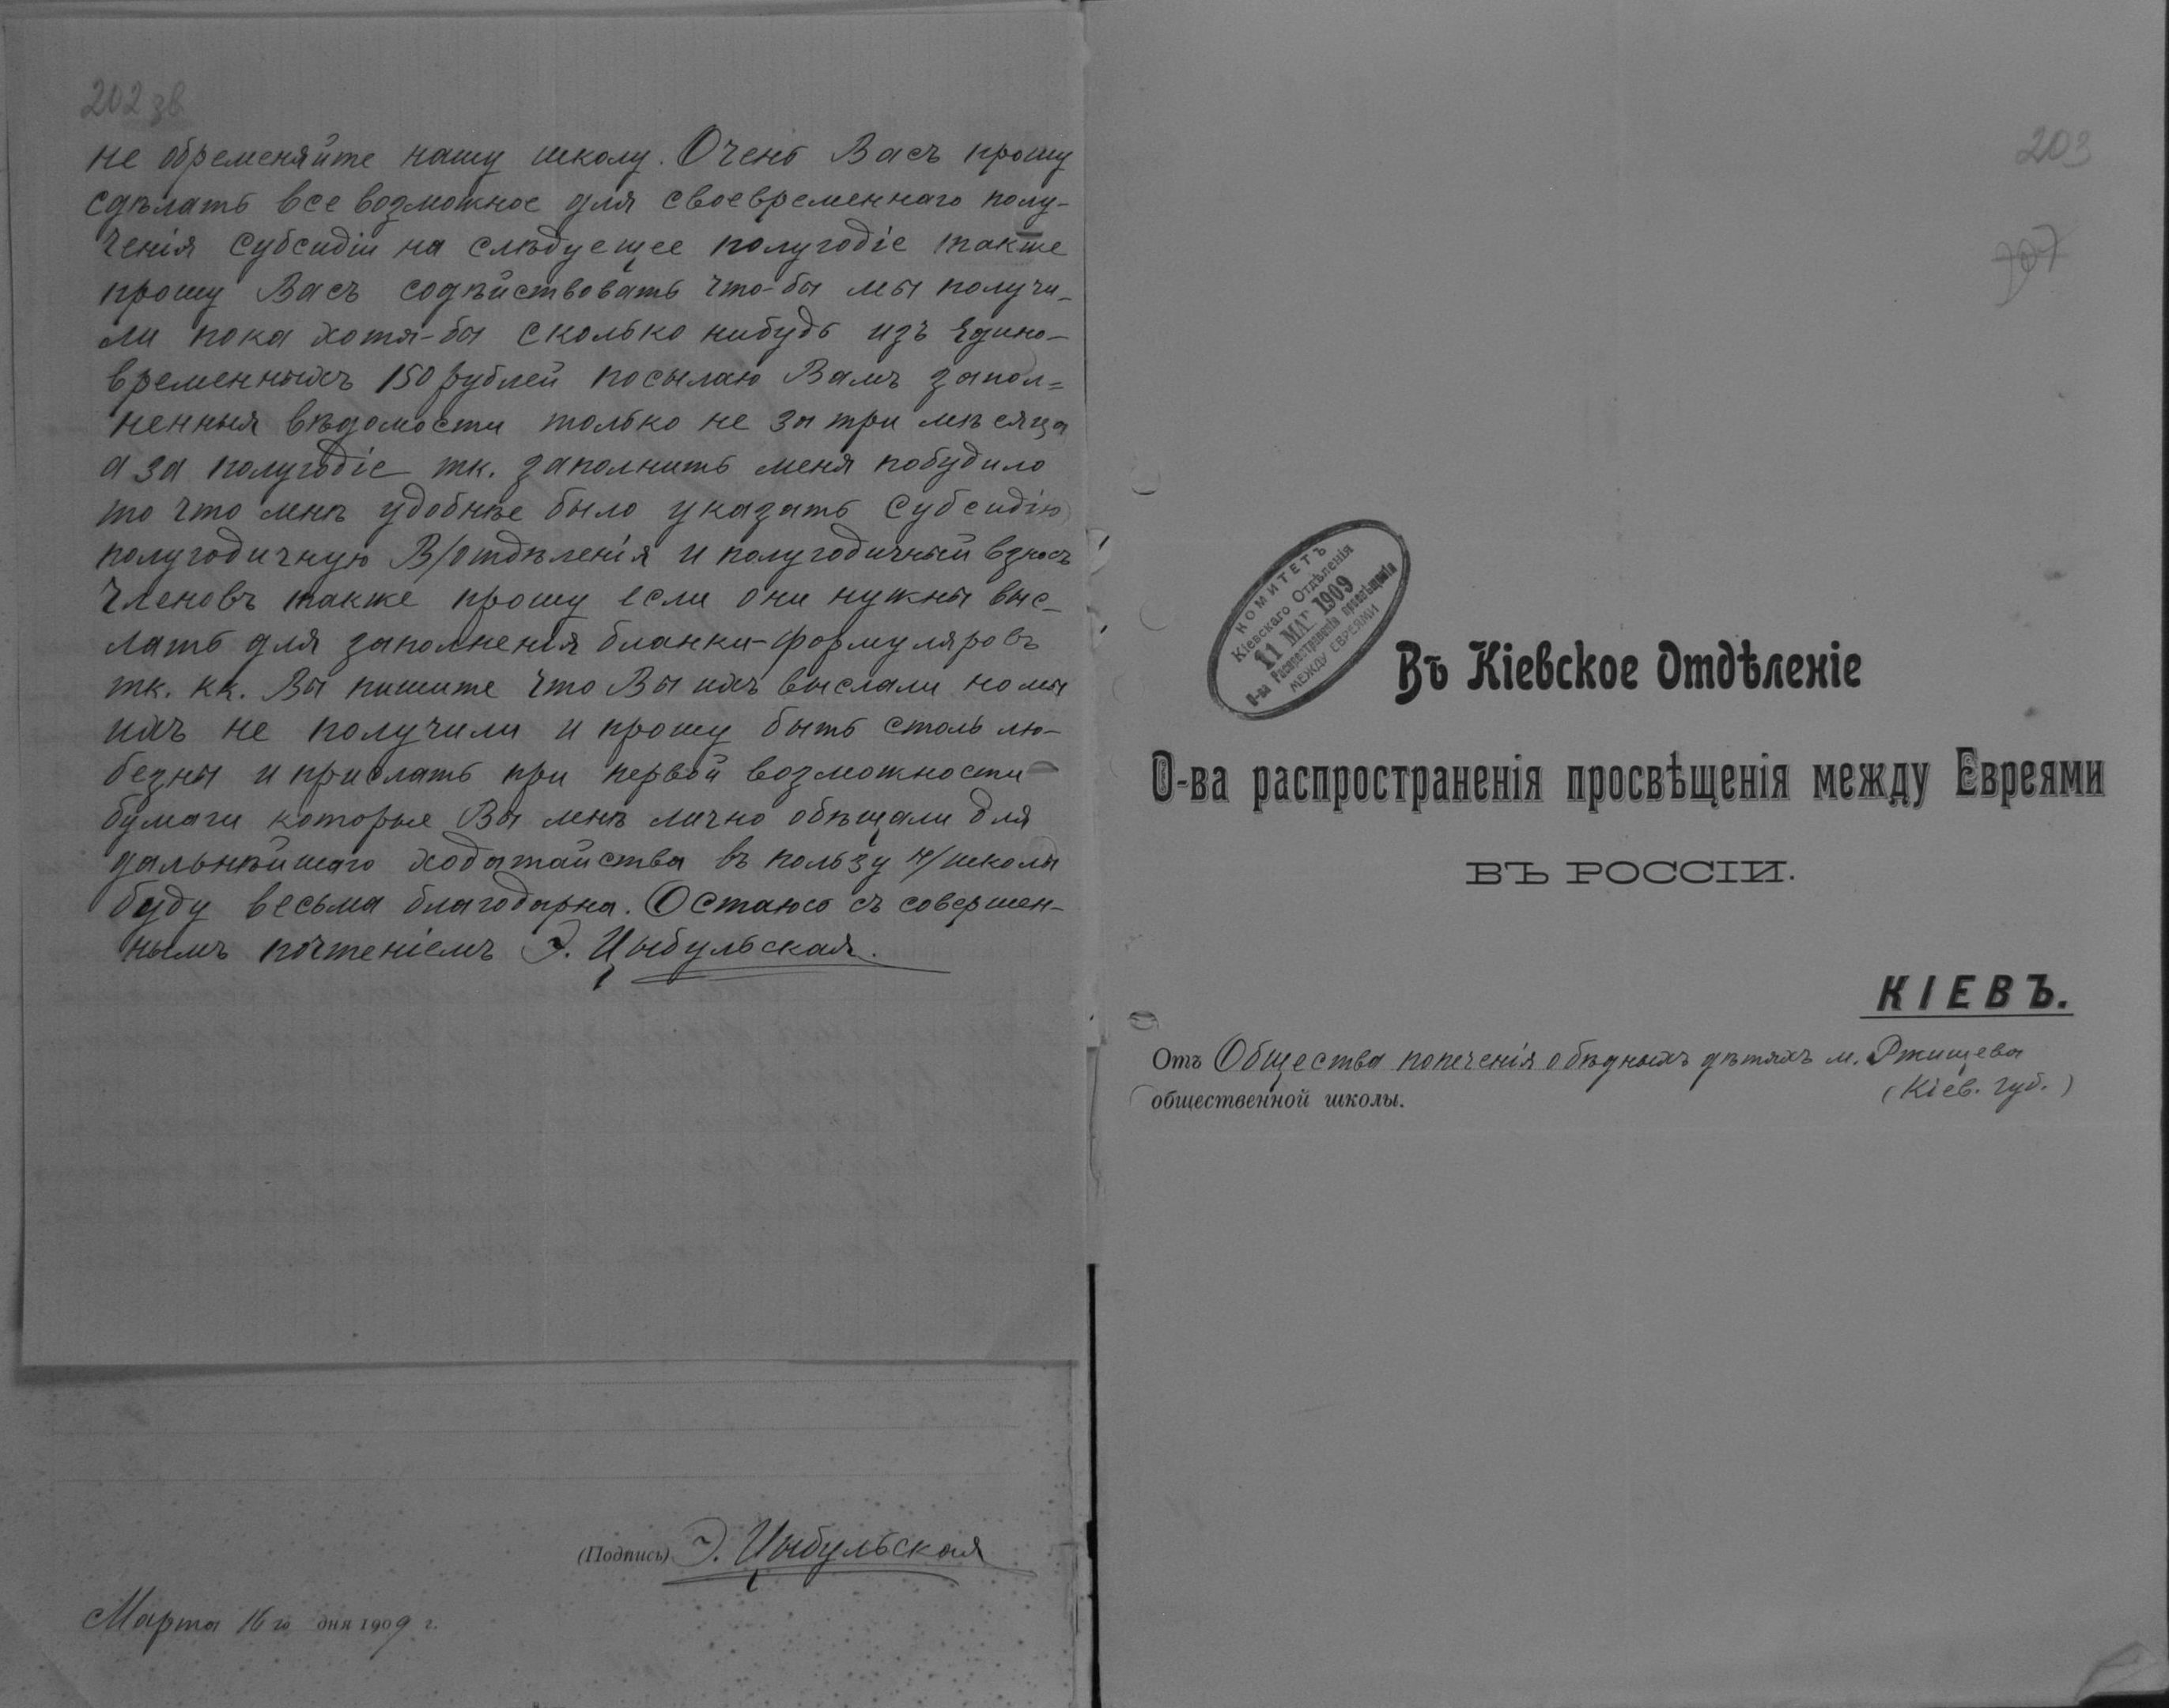 202 зв
не обременяйте нашу школу. Очень Васъ прошу
сдѣлать все возможное для своевременнаго полу-
ченія субсидіи на слѣдуещее полугодіе также
прошу Васъ содѣйствовать что-бы мы получи-
ли пока хотя-бы сколько нибудь изъ Едино-
временныхъ 150 рублей посылаю Вамъ запол=
ненныя вѣдомости только не за три мѣсяца
а за полугодіе тк. заполнить меня побудило
то что мнѣ удобнѣе было указать субсидію
полугодичную В/отдѣленія и полугодичный взносъ
Членовъ также прошу если они нужны выс-
лать для заполненія бланки-формуляровъ
тк. кк. Вы пишите что Вы ихъ выслали но мы
ихъ не получили и прошу быть столь лю-
безны и прислать при первой возможности
бумаги которые Вы мнѣ лично обѣщали для
дальнѣйшаго ходатайства въ пользу н/школы
буду весьма благодарна. Остаюсь съ совершен-
нымъ почтеніемъ Э. Цыбульская.
(Подпись) Э. Цыбульская
Марта 16го дня 1909 г.
203
КОМИТЕТЪ
Кіевскаго Отдѣленія
11 МАР 1909
О-ва Распространенія просвѣщенія
МЕЖДУ ЕВРЕЯМИ
Въ Кіевское Отдѣленіе
О-ва распространенія просвѣщенія между Евреями
ВЪ РОССІИ.
КІЕВЪ.
Отъ Общества попеченія о бѣдныхъ дѣтяхъ м. Ржищева
(Кіев. губ.)
общественной школы.